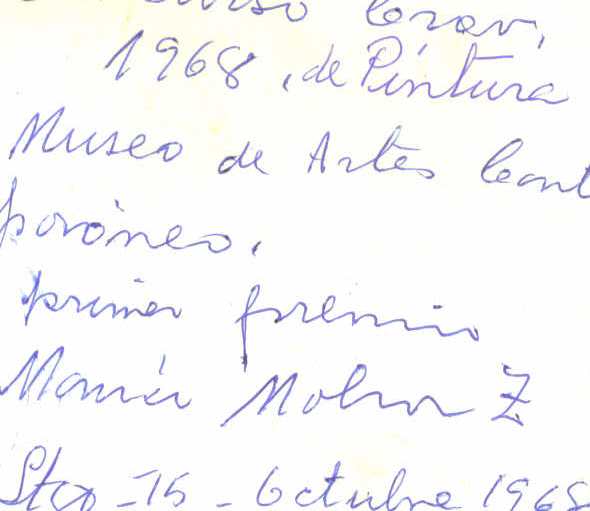 curso Crav,
1968, de Pintura
Museo de Artes Cont
poráneo.
primer premio
María Mohor Z
Stgo - 15 - Octubre 1968